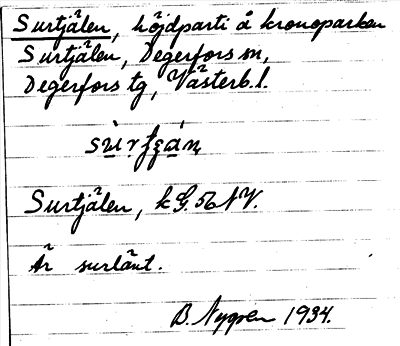 Surtjälen, höjdparti å kronoparken
Surtjälen, Degerfors sn,
Degerfors tg, Västerb.l.
Surtjälen, k G. 56 NV.
Är surlänt.
B. Nygren 1934.